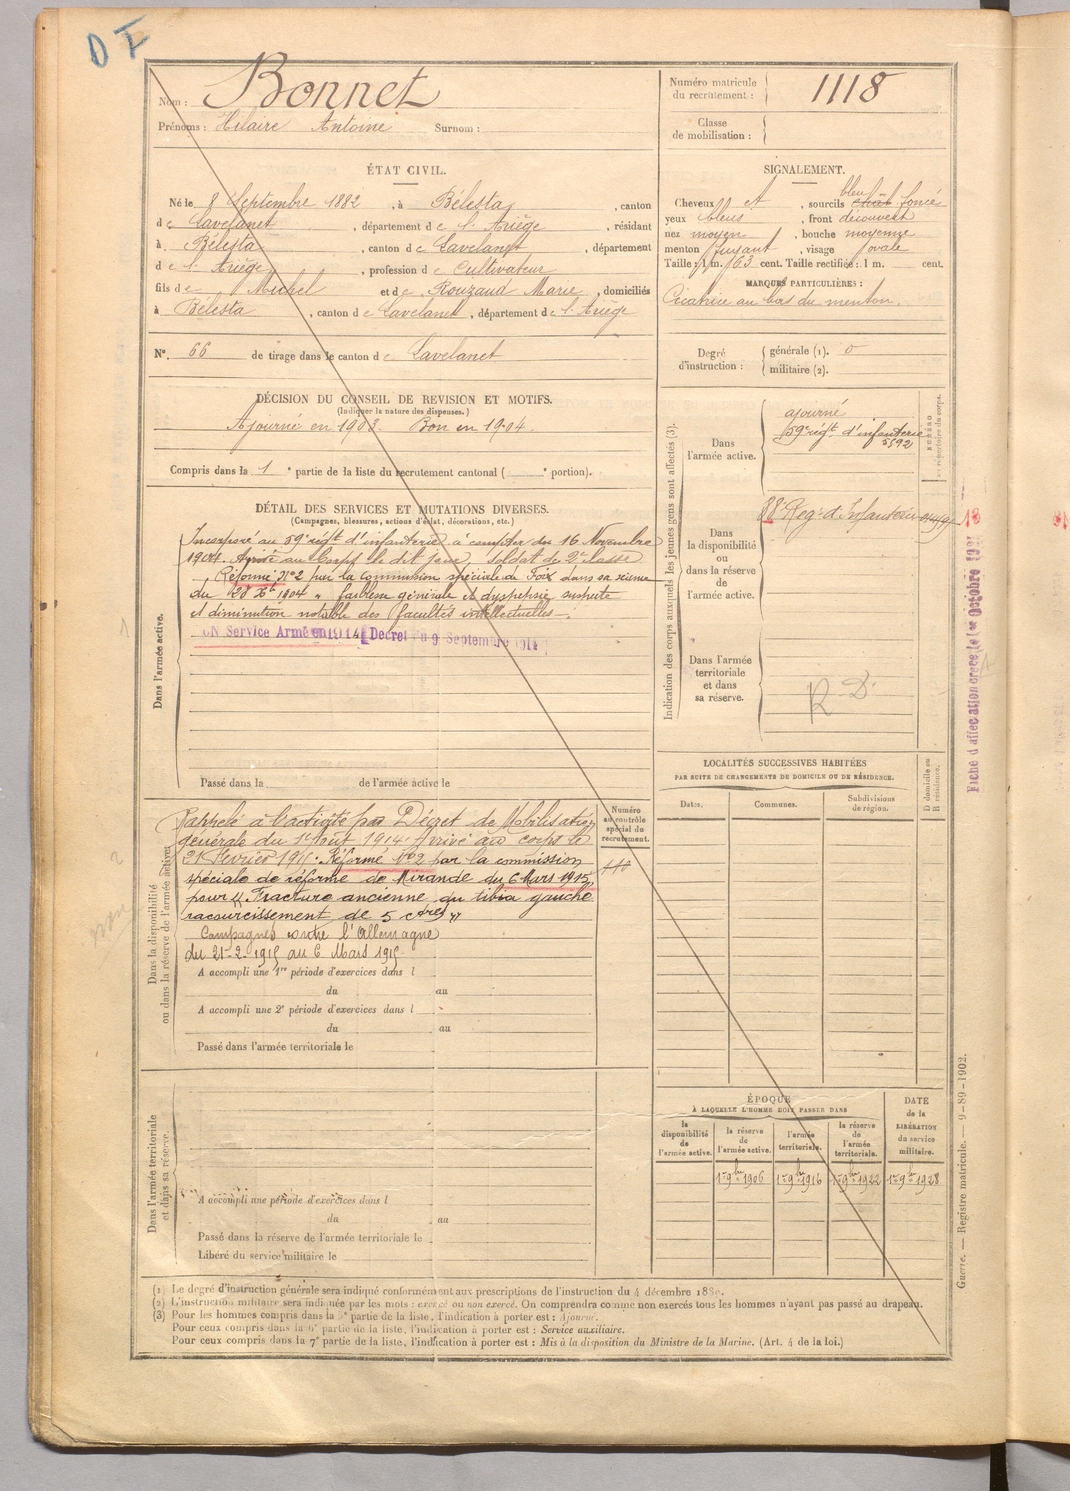 D I
Nom : Bonnet
Prénoms : Hilaire Antoine Surnom :
Numéro matricule
du recrutement : 1118
Classe
de mobilisation :
ÉTAT CIVIL.
Né le 8 Septembre 1882, à Bélesta, canton
de Lavelanet, département de l'Ariège, résidant
à Bélesta, canton de Lavelanet, département
de l'Ariège, profession de Cultivateur
fils de Michel et de Rouzaud Marie, domiciliés
à Bélesta, canton de Lavelanet, département de l'Ariège
N° 66 de tirage dans le canton de Lavelanet
SIGNALEMENT.
bleu
Cheveux et, sourcils foncé
yeux bleus, front découvert
nez moyen, bouche moyenne
menton fuyant, visage ovale
Taille : 1 m. 63 cent. Taille rectifiée : 1 m. cent.
MARQUES PARTICULIÈRES :
Cicatrice au bas du menton.
Degré
d'instruction :
générale (1). 0
militaire (2).
DÉCISION DU CONSEIL DE REVISION ET MOTIFS.
(Indiquer la nature des dispenses.)
Ajourné en 1903. Bon en 1904.
Compris dans la 1e partie de la liste du recrutement cantonal ( e portion).
DÉTAIL DES SERVICES ET MUTATIONS DIVERSES.
(Campagnes, blessures, actions d'éclat, décorations, etc.)
Dans l'armée active.
Incorporé au 59e régt d'infanterie à compter du 16 Novembre
1904. Arrivé au Corps le dit jour, soldat de 2e classe
Réformé N°2 par la commission spéciale de Foix dans sa séance
du 28 Xbre 1904 " faiblesse générale et dyspepsie suspecte
et diminution notable des facultés intellectuelles.
ON Service Armé en 1914 Décret du 9 Septembre 1914
Passé dans la de l'armée active le
Indication des corps auxquels les jeunes gens sont affectés (3).
Dans
l'armée active.
ajourné
59e régt. d'infanterie
5592
NUMÉRO
au répertoire du corps.
Dans
la disponibilité
ou
dans la réserve
de
l'armée active.
88e Regt d'Infanterie
Dans l'armée
territoriale
et dans
sa réserve.
R. D.
Fiche d'affectation créée le 1er Octobre
LOCALITÉS SUCCESSIVES HABITÉES
PAR SUITE DE CHANGEMENTS DE DOMICILE OU DE RÉSIDENCE.
Dates.
Communes.
Subdivisions
de région.
D domicile ou
R résidence.
Dans la disponibilité
ou dans la réserve de l'armée active.
Rappelé à l'activité par Décret de Mobilisation
générale du 1er Août 1914. Arrivé au corps le
21 Février 1915. Réformé N°2 par la commission
spéciale de réforme de Mirande du 6 Mars 1915,
pour " Fracture ancienne du tibia gauche
racourcissement de 5 ctres "
Campagnes contre l'Allemagne
du 21-2-1915 au 6 Mars 1915
Numéro
au contrôle
spécial du
recrutement.
A accompli une 1re période d'exercices dans l
du au
A accompli une 2e période d'exercices dans l
du au
Passé dans l'armée territoriale le
Dans l'armée territoriale
et dans sa réserve.
A accompli une période d'exercices dans l
du au
Passé dans la réserve de l'armée territoriale le
Libéré du service militaire le
ÉPOQUE
À LAQUELLE L'HOMME DOIT PASSER DANS
la
disponibilité
de
l'armée active.
la réserve
de
l'armée active.
l'armée
territoriale.
la réserve
de
l'armée
territoriale.
DATE
de la
LIBÉRATION
du service
militaire.
1er 9bre 1906
1er 9bre 1916
1er 9bre 1922
1er 9bre 1928
Guerre. — Registre matricule. — 9-89-1902.
(1) Le degré d'instruction générale sera indiqué conformément aux prescriptions de l'instruction du 4 décembre 1889.
(2) L'instruction militaire sera indiquée par les mots : exercé ou non exercé. On comprendra comme non exercés tous les hommes n'ayant pas passé au drapeau.
(3) Pour les hommes compris dans la 5e partie de la liste, l'indication à porter est : Ajourné.
Pour ceux compris dans la 6e partie de la liste, l'indication à porter est : Service auxiliaire.
Pour ceux compris dans la 7e partie de la liste, l'indication à porter est : Mis à la disposition du Ministre de la Marine. (Art. 4 de la loi.)